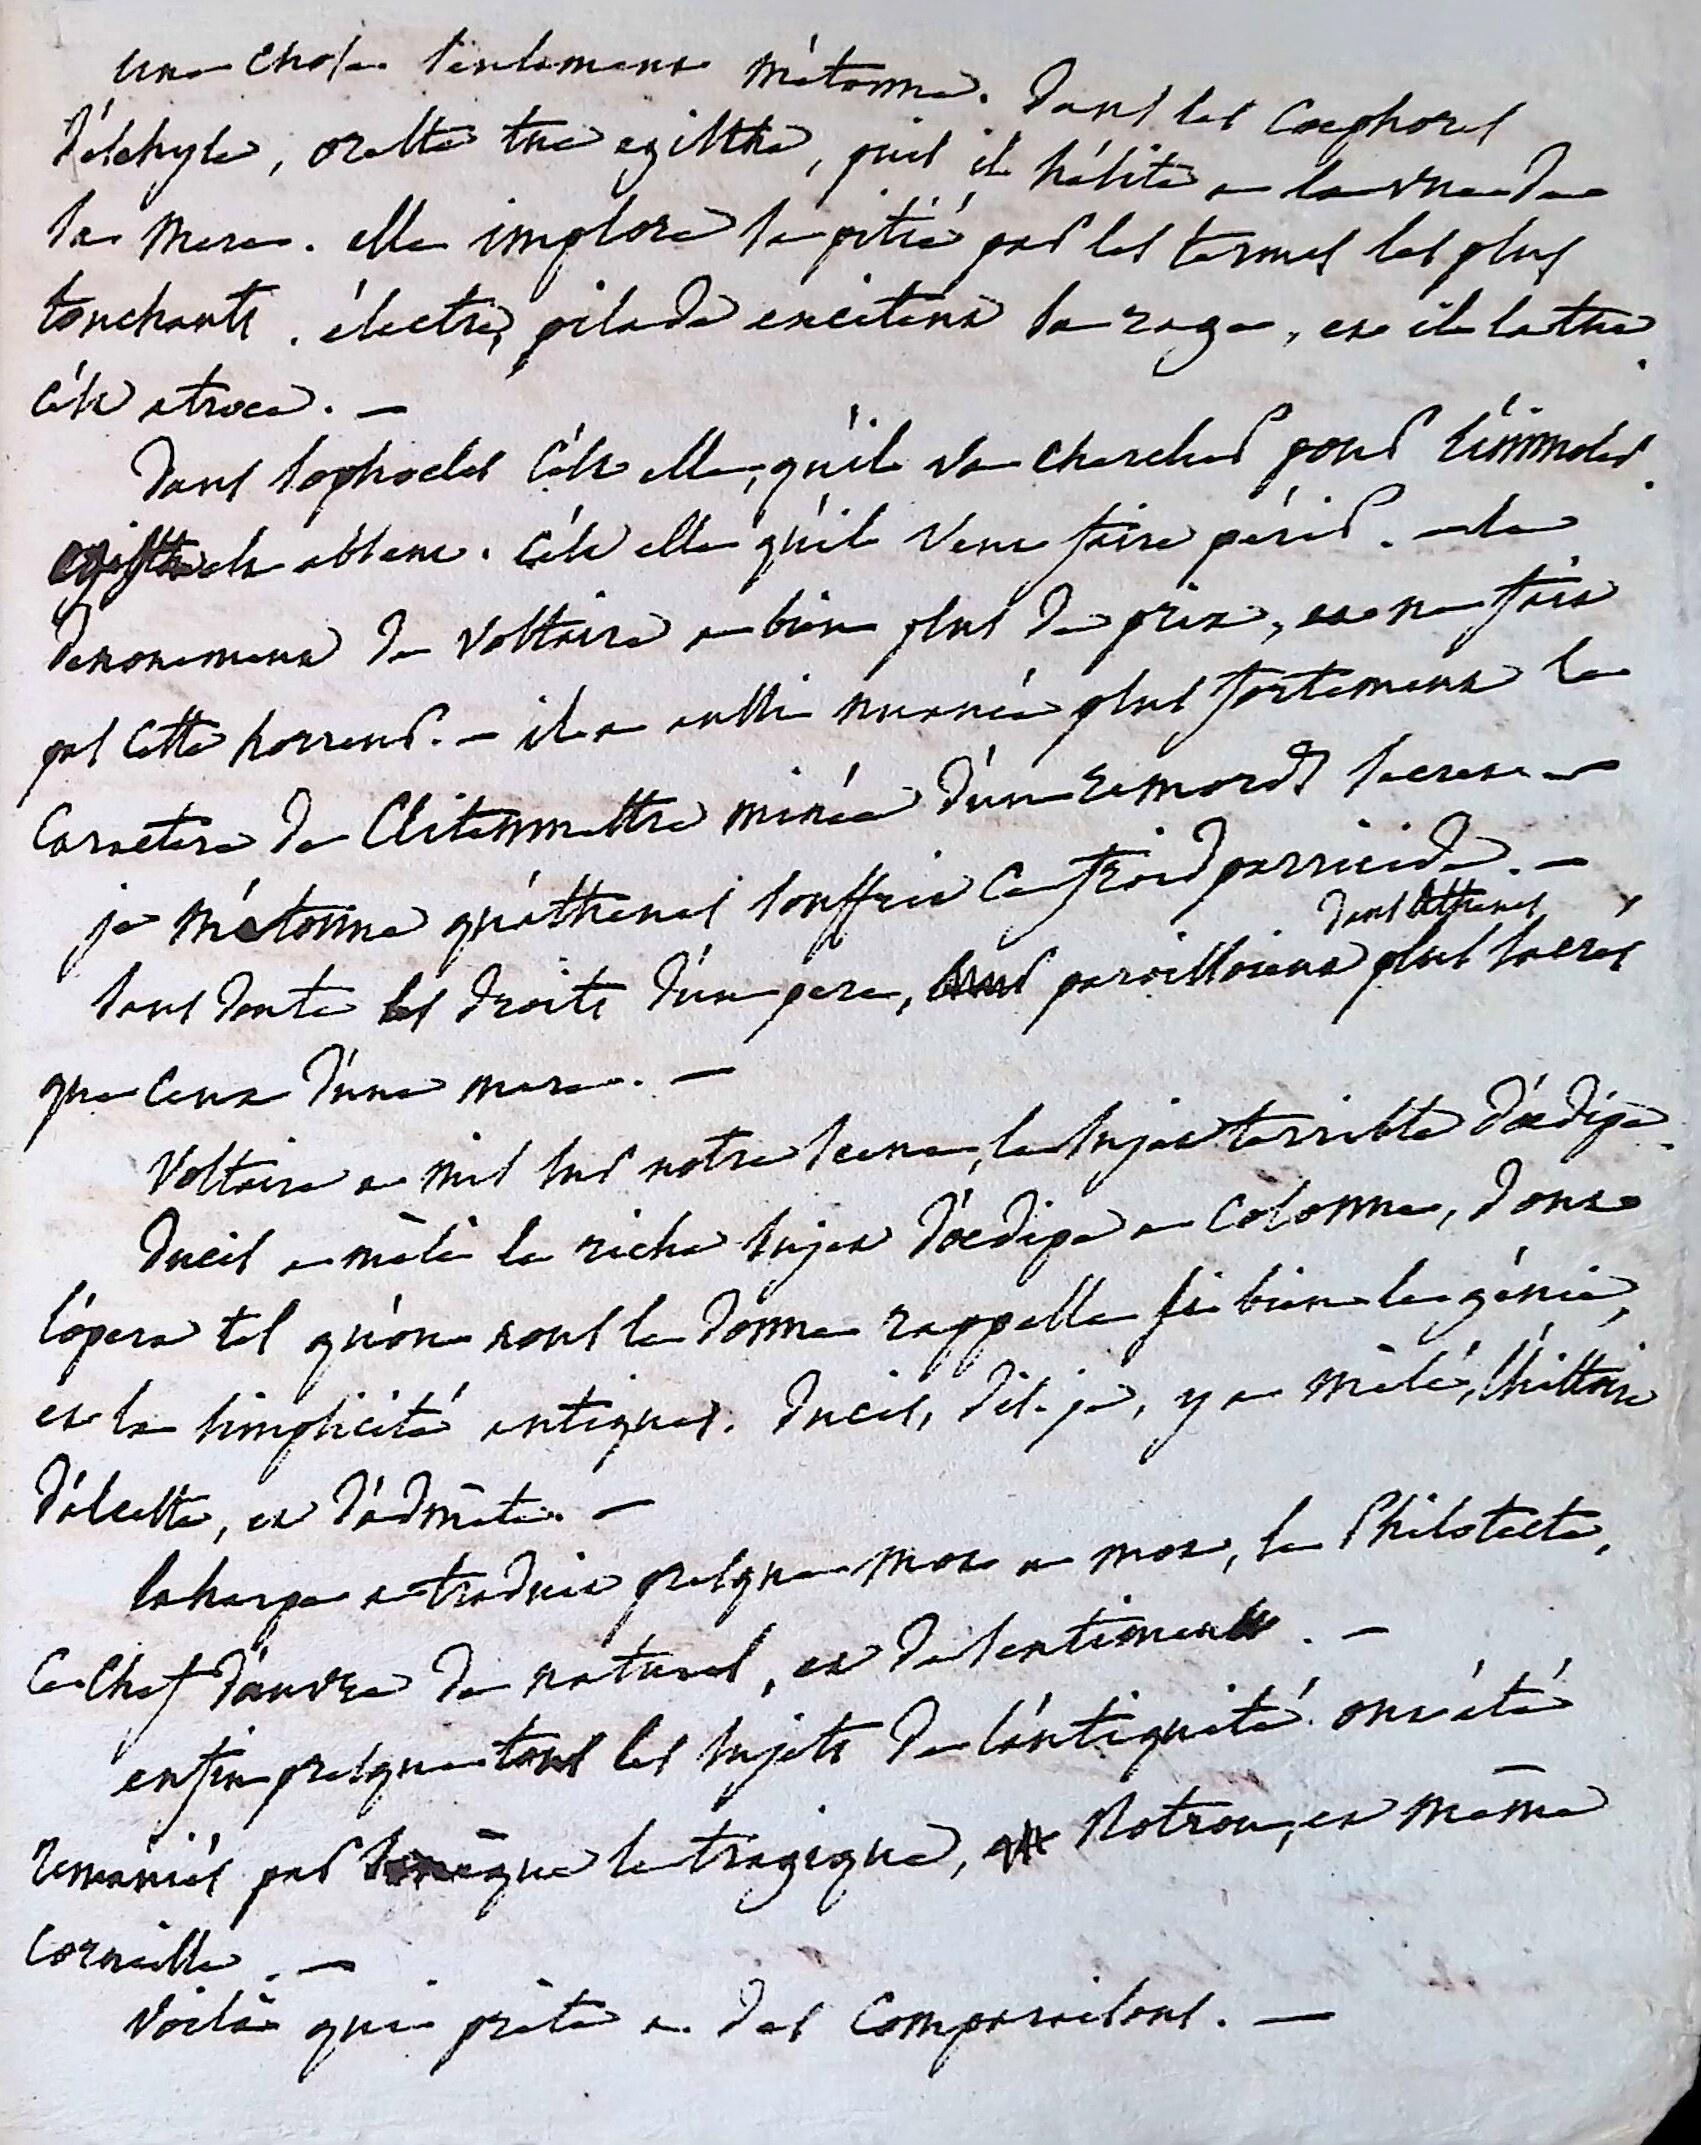 une chose seulement m'étonne. Dans les Coephores
d'eschyle, oreste tue egisthe, puis il hésite a la vue de
sa mere. elle implore sa pitié par les termes les plus
touchants. électre, pilade excitent sa rage, et il la tue.
c'est atroce. —
Dans sophocles c'est elle, qu'il va chercher pour l'immoler.
egisthe est absent. c'est elle qu'il veut faire périr. — le
denouement de Voltaire a bien plus de prix, et ne fait
pas cette horreur. — il a aussi nuancé plus fortement le
caractere de Clitemnestre minée d'un remords secret —
je m'étonne qu'athenes souffrit ce froid parricide. —
dans Athenes
sans doute les droits d'un pere, paroissoient plus sacrés
que ceux d'une mere. —
Voltaire a mis sur notre scene, le sujet terrible d'oedipe.
Ducis a mêlé le riche sujet d'oedipe a Colonne, dont
l'opera tel qu'on nous le donne rappelle si bien le génie,
et la simplicité antiques. Ducis, dis-je, y a mêlé, l'histoire
d'alceste, et d'admête. —
laharpe a traduit presque mot a mot, le Philoctecte,
ce chef d'œuvre de naturel, et de sentiment. —
enfin presque tous les sujets de l'antiquité ont été
remaniés par senèque le tragique, Rotrou, et même
Corneille. —
Voilà qui prête a des comparaisons. —